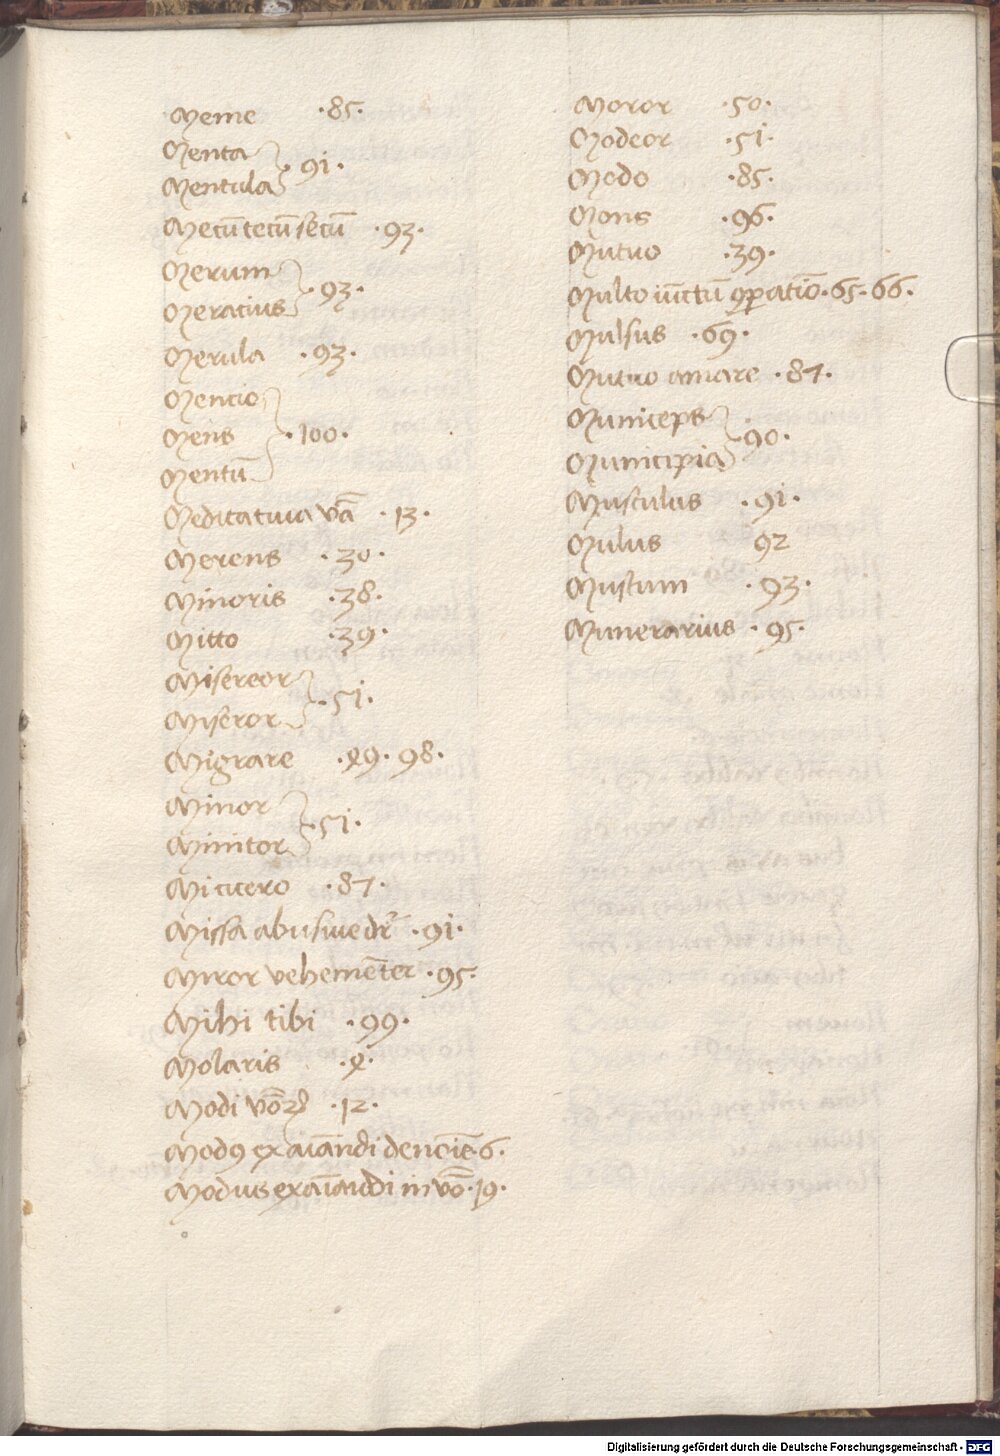 Meme ·85·
Menta
Mentula ·91·
Mecū tecū secū ·93·
Merum
Meratius ·93·
Merula ·93·
Mentio
Mens ·100·
Mentū
Meditatiuia vā ·13·
Merens ·30·
Minoris ·38·
Mitto ·39·
Misereor
Miseror ·51·
Migrare ·49· 98·
Minor
Minitor ·51·
Mi cicero ·87·
Missa abusiue dr̄ ·91·
Miror vehemēter ·95·
Mihi tibi ·99·
Molaris ·4·
Modi vōꝝ ·12·
Modꝯ exaīandi de nōīe·6·
Modus exaīandi in vō·19·
Moror ·50·
Modeor ·51·
Modo ·85·
Mons ·96·
Mutuo ·39·
Multo iūctū ꝯꝑatiō·65·66·
Mulsus ·69·
Mutuo amare ·87·
Municeps
Municipia ·90·
Musculus ·91·
Mulus 92
Mustum ·93·
Munerarius ·95·
Digitalisierung gefördert durch die Deutsche Forschungsgemeinschaft - DFG